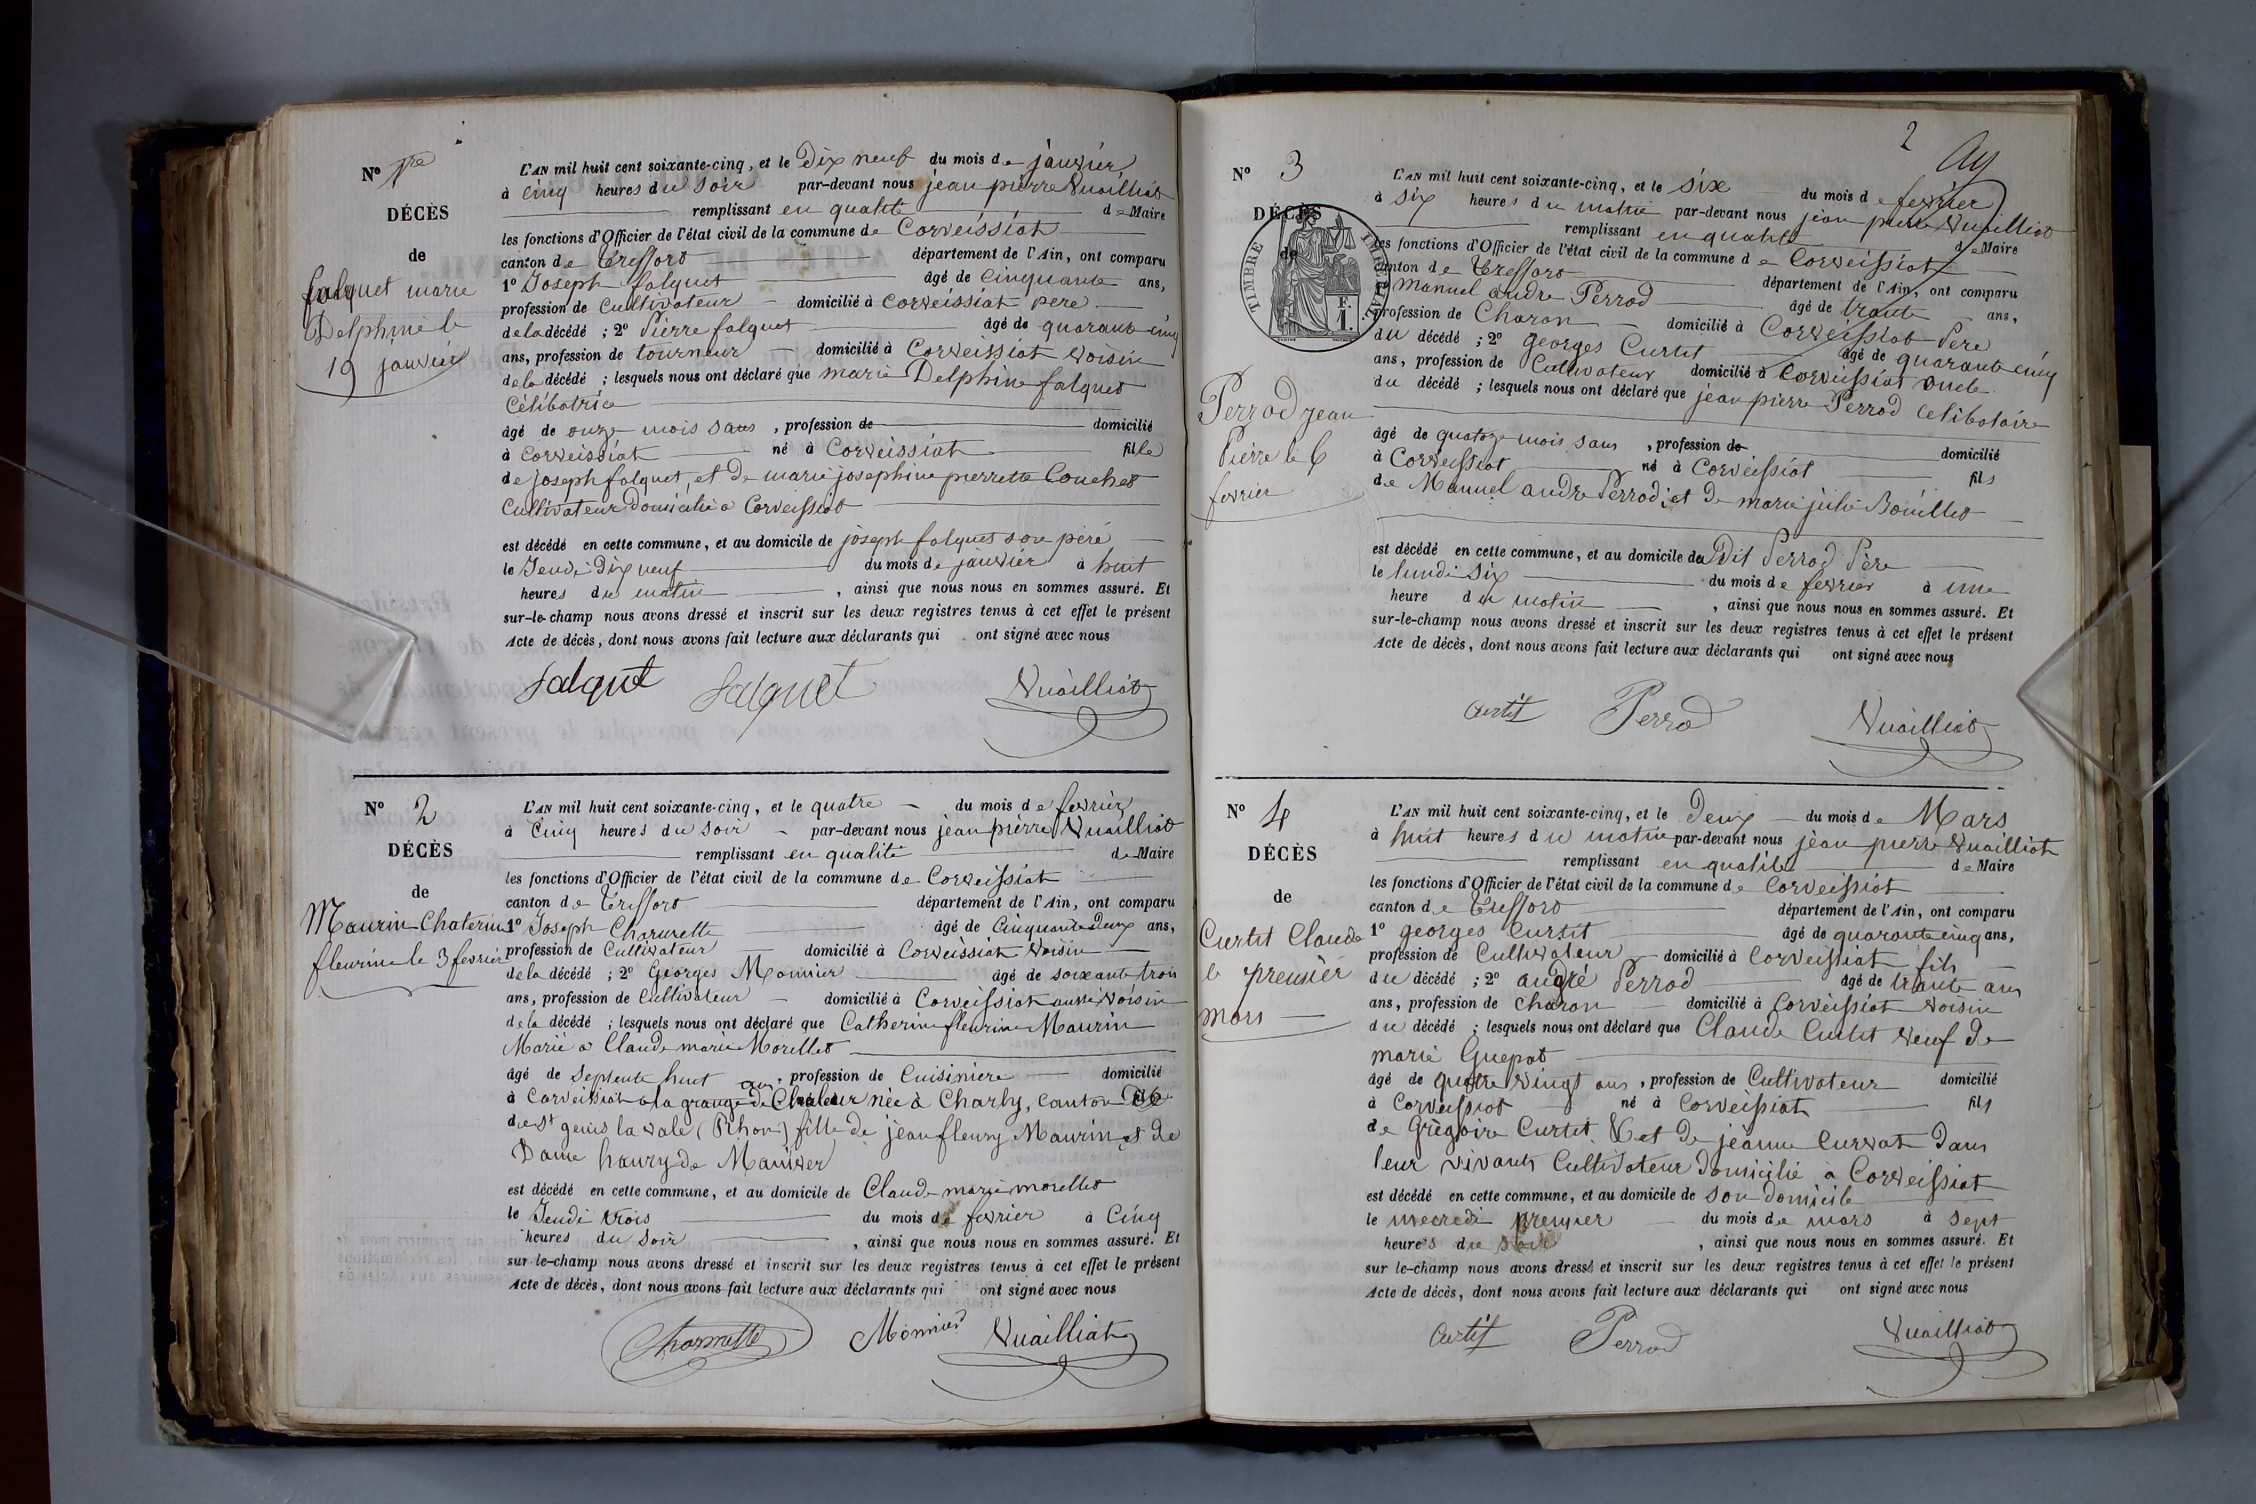 N° 1re
DÉCÈS
de
falquet marie
Delphine le
19 janvier
L'AN mil huit cent soixante-cinq, et le Dix neuf du mois de janvier
à cinq heures du soir par-devant nous jean pierre Vuailliat
remplissant en qualité de Maire
les fonctions d'Officier de l'état civil de la commune de Corveissiat
canton de Treffort département de l'Ain, ont comparu
1° Joseph falquet âgé de Cinquante ans,
profession de Cultivateur domicilié à Corveissiat pere
de la décédé ; 2° Pierre falquet âgé de quarante cinq
ans, profession de tourneur domicilié à Corveissiat voisin
de la décédé ; lesquels nous ont déclaré que marie Delphine falquet
Célibatrie
âgé de onze mois sans , profession de domicilié
à Corveissiat né à Corveissiat fille
de joseph falquet, et de marie josephine pierrette Couchet
Cultivateur Domicilié a Corveissiat
est décédé en cette commune, et au domicile de joseph falquet son péré
le Jeudi Dix neuf du mois de janvier à huit
heures du matin , ainsi que nous nous en sommes assuré. Et
sur-le-champ nous avons dressé et inscrit sur les deux registres tenus à cet effet le présent
Acte de décès, dont nous avons fait lecture aux déclarants qui ont signé avec nous
falquet falquet Vuailliat
N° 2
DÉCÈS
de
Maurin Chaterin
fleurine le 3 fevrier
L'AN mil huit cent soixante-cinq, et le quatre du mois de fevrier
à Cinq heures du soir par-devant nous jean pierre Vuailliat
remplissant en qualité de Maire
les fonctions d'Officier de l'état civil de la commune de Corveissiat
canton de Treffort département de l'Ain, ont comparu
1° Joseph Charnette âgé de Cinquante deux ans,
profession de Cultivateur domicilié à Corveissiat Voisin
de la décédé ; 2° Georges Monnier âgé de soixante trois
ans, profession de Cultivateur domicilié à Corveissiat aussi Voisin
de la décédé ; lesquels nous ont déclaré que Catherine fleurine Maurin
Marié a Claude marie Morellet
âgé de septente huit ans , profession de Cuisiniere domicilié
à Corveissiat a la grange de Chaleur née à Charly, canton
de St genis la vale (Rhon) fille de jean fleury Maurin et de
Dame haury de
est décédé en cette commune, et au domicile de Claude marie morellet
le Jeudi trois du mois de fevrier à Cinq
heures du soir , ainsi que nous nous en sommes assuré. Et
sur-le-champ nous avons dressé et inscrit sur les deux registres tenus à cet effet le présent
Acte de décès, dont nous avons fait lecture aux déclarants qui ont signé avec nous
Charnette Monnier Vuailliat
2
N° 3
DÉCÈS
de
TIMBRE IMPERIAL
F.
1.
Perrod jean
Pierre le 6
fevrier
L'AN mil huit cent soixante-cinq, et le six du mois de fevrier
à six heures du matin par-devant nous jean pierre Vuailliat
remplissant en qualité de Maire
les fonctions d'Officier de l'état civil de la commune de Corveissiat
canton de Treffort département de l'Ain, ont comparu
1° manuel andre Perrod âgé de trante ans,
profession de Charon domicilié à Corveissiat Pere
du décédé ; 2° georges Curtit âgé de quarante cinq
ans, profession de Cultivateur domicilié à Corveissiat oncle
du décédé ; lesquels nous ont déclaré que jean pierre Perrod Celibataire
âgé de quatoze mois sans , profession de domicilié
à Corveissiat né à Corveissiat fils
de Manuel andre Perrod, et de marie julie Bouillet
est décédé en cette commune, et au domicile du Dit Perrod Père
le lundi six du mois de fevrier à une
heure du matin , ainsi que nous nous en sommes assuré. Et
sur-le-champ nous avons dressé et inscrit sur les deux registres tenus à cet effet le présent
Acte de décès, dont nous avons fait lecture aux déclarants qui ont signé avec nous
Curtit Perrod Vuailliat
N° 4
DÉCÈS
de
Curtit Claude
le premièr
mars
L'AN mil huit cent soixante-cinq, et le Deux du mois de Mars
à huit heures du matin par-devant nous jean pierre Vuailliat
remplissant en qualité de Maire
les fonctions d'Officier de l'état civil de la commune de Corveissiat
canton de Treffort département de l'Ain, ont comparu
1° georges Curtit âgé de quarante cinq ans,
profession de Cultivateur domicilié à Corveissiat fils
du décédé ; 2° andré Perrod âgé de trante ans
ans, profession de charon domicilié à Corveissiat Voisin
du décédé ; lesquels nous ont déclaré que Claude Curtit Veuf de
marie Guepat
âgé de quatre vingt ans , profession de Cultivateur domicilié
à Corveissiat né à Corveissiat fils
de Grègoire Curtit et de jeanne Curvat Dans
leur vivants Cultivateur Domicilié à Corveissiat
est décédé en cette commune, et au domicile de son domicile
le mecredi premier du mois de mars à sept
heures du soir , ainsi que nous nous en sommes assuré. Et
sur-le-champ nous avons dressé et inscrit sur les deux registres tenus à cet effet le présent
Acte de décès, dont nous avons fait lecture aux déclarants qui ont signé avec nous
Curtit Perrod Vuailliat